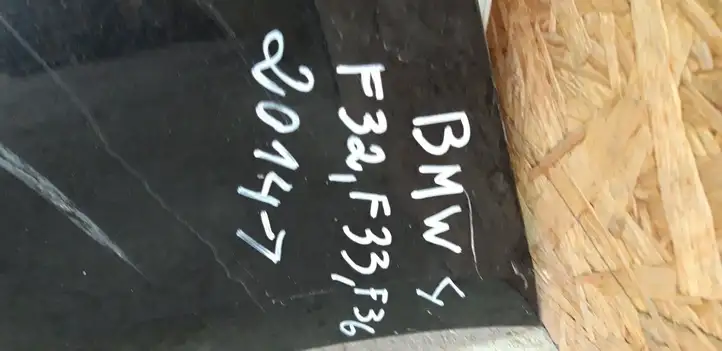 BMW 4
F32, F33, F36
2014→